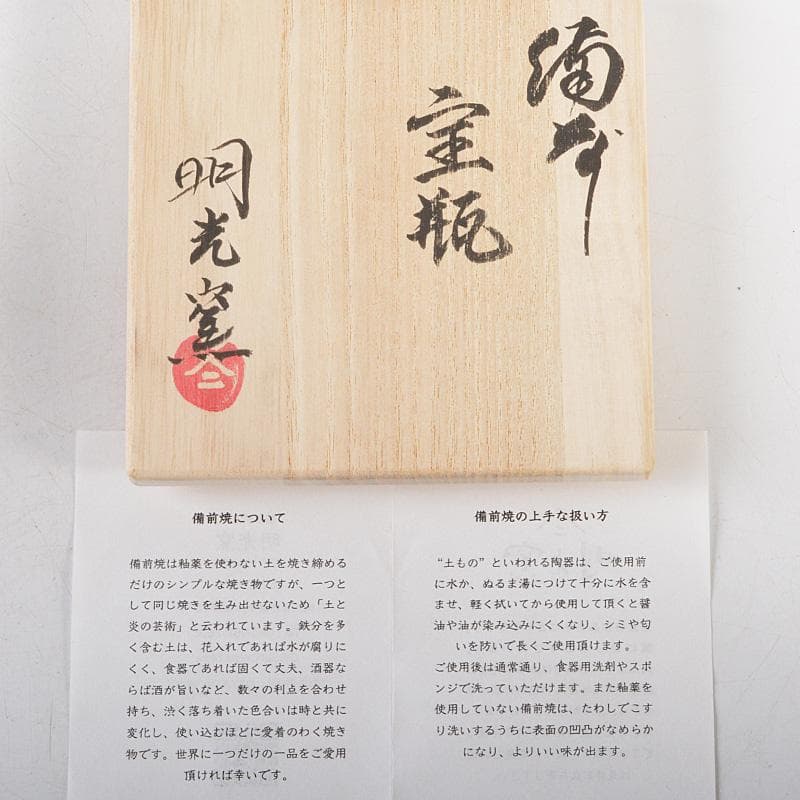 備前
宝瓶
明光窯
備前焼について
備前焼は釉薬を使わない土を焼き締める
だけのシンプルな焼き物ですが、一つと
して同じ焼きを生み出せないため「土と
炎の芸術」と云われています。鉄分を多
く含む土は、花入れであれば水が腐りに
くく、食器であれば固くて丈夫、酒器な
らば酒が旨いなど、数々の利点を合わせ
持ち、渋く落ち着いた色合いは時と共に
変化し、使い込むほどに愛着のわく焼き
物です。世界に一つだけの一品をご愛用
頂ければ幸いです。
備前焼の上手な扱い方
“土もの”といわれる陶器は、ご使用前
に水か、ぬるま湯につけて十分に水を含
ませ、軽く拭いてから使用して頂くと醤
油や油が染み込みにくくなり、シミや匂
いを防いで長くご使用頂けます。
ご使用後は通常通り、食器用洗剤やスポ
ンジで洗っていただけます。また釉薬を
使用していない備前焼は、たわしでこす
り洗いするうちに表面の凹凸がなめらか
になり、よりいい味が出ます。